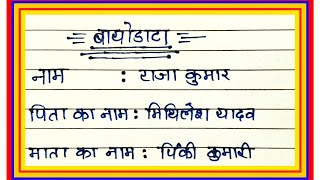 बायोडाटा
नाम : राजा कुमार
पिता का नाम : मिथिलेश यादव
माता का नाम : पिंकी कुमारी